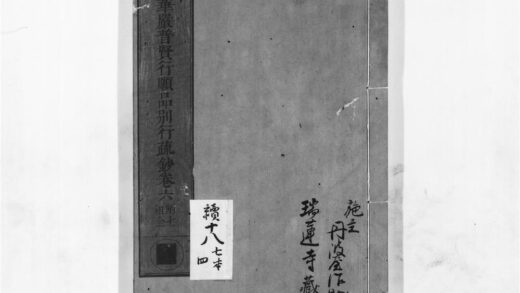 施主
丹波屋作兵
瑞蓮寺藏
華嚴普賢行願品別行疏鈔卷六
續十八
七本
四